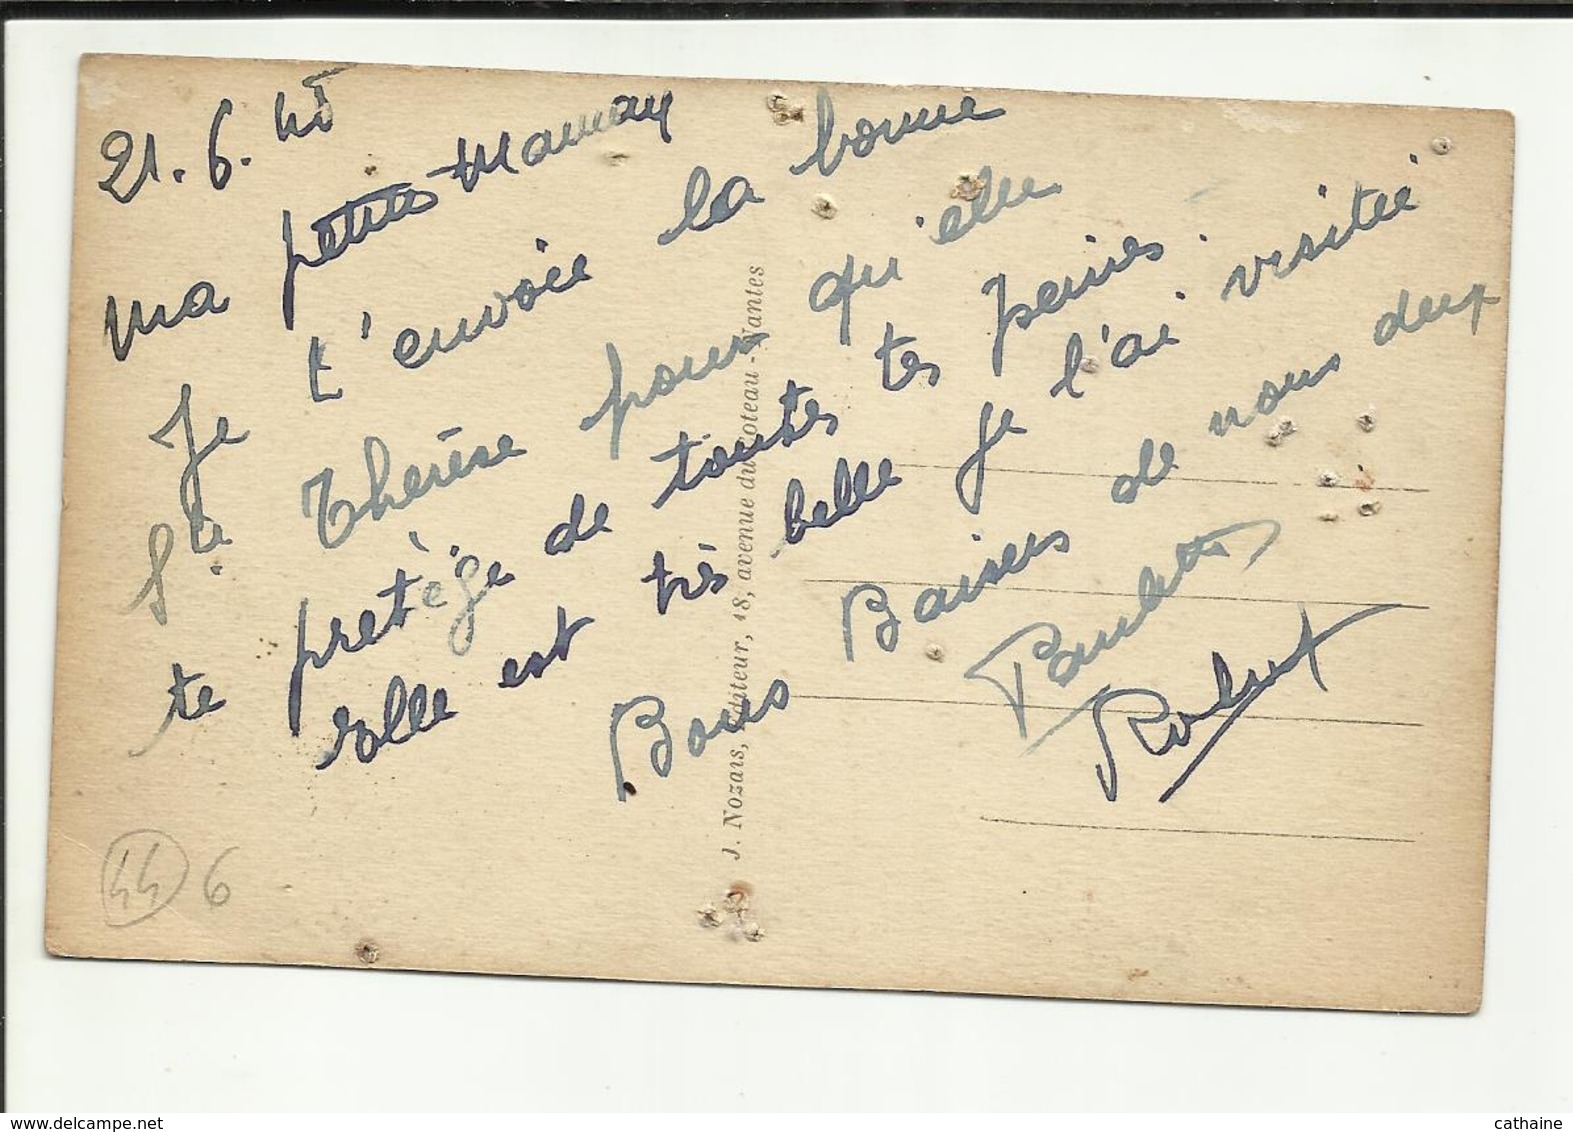 21.6.45
ma petite Maman
Je t'envoie la bonne
Ste Thérèse pour qu'elle
te pretège de toutes tes peines.
Elle est très belle je l'ai visitée
Bons Baisers de nous deux
Paulette
Robert
J. Nozais, Editeur, 18, avenue du Coteau - Nantes
44 6
www.delcampe.net
cathaine